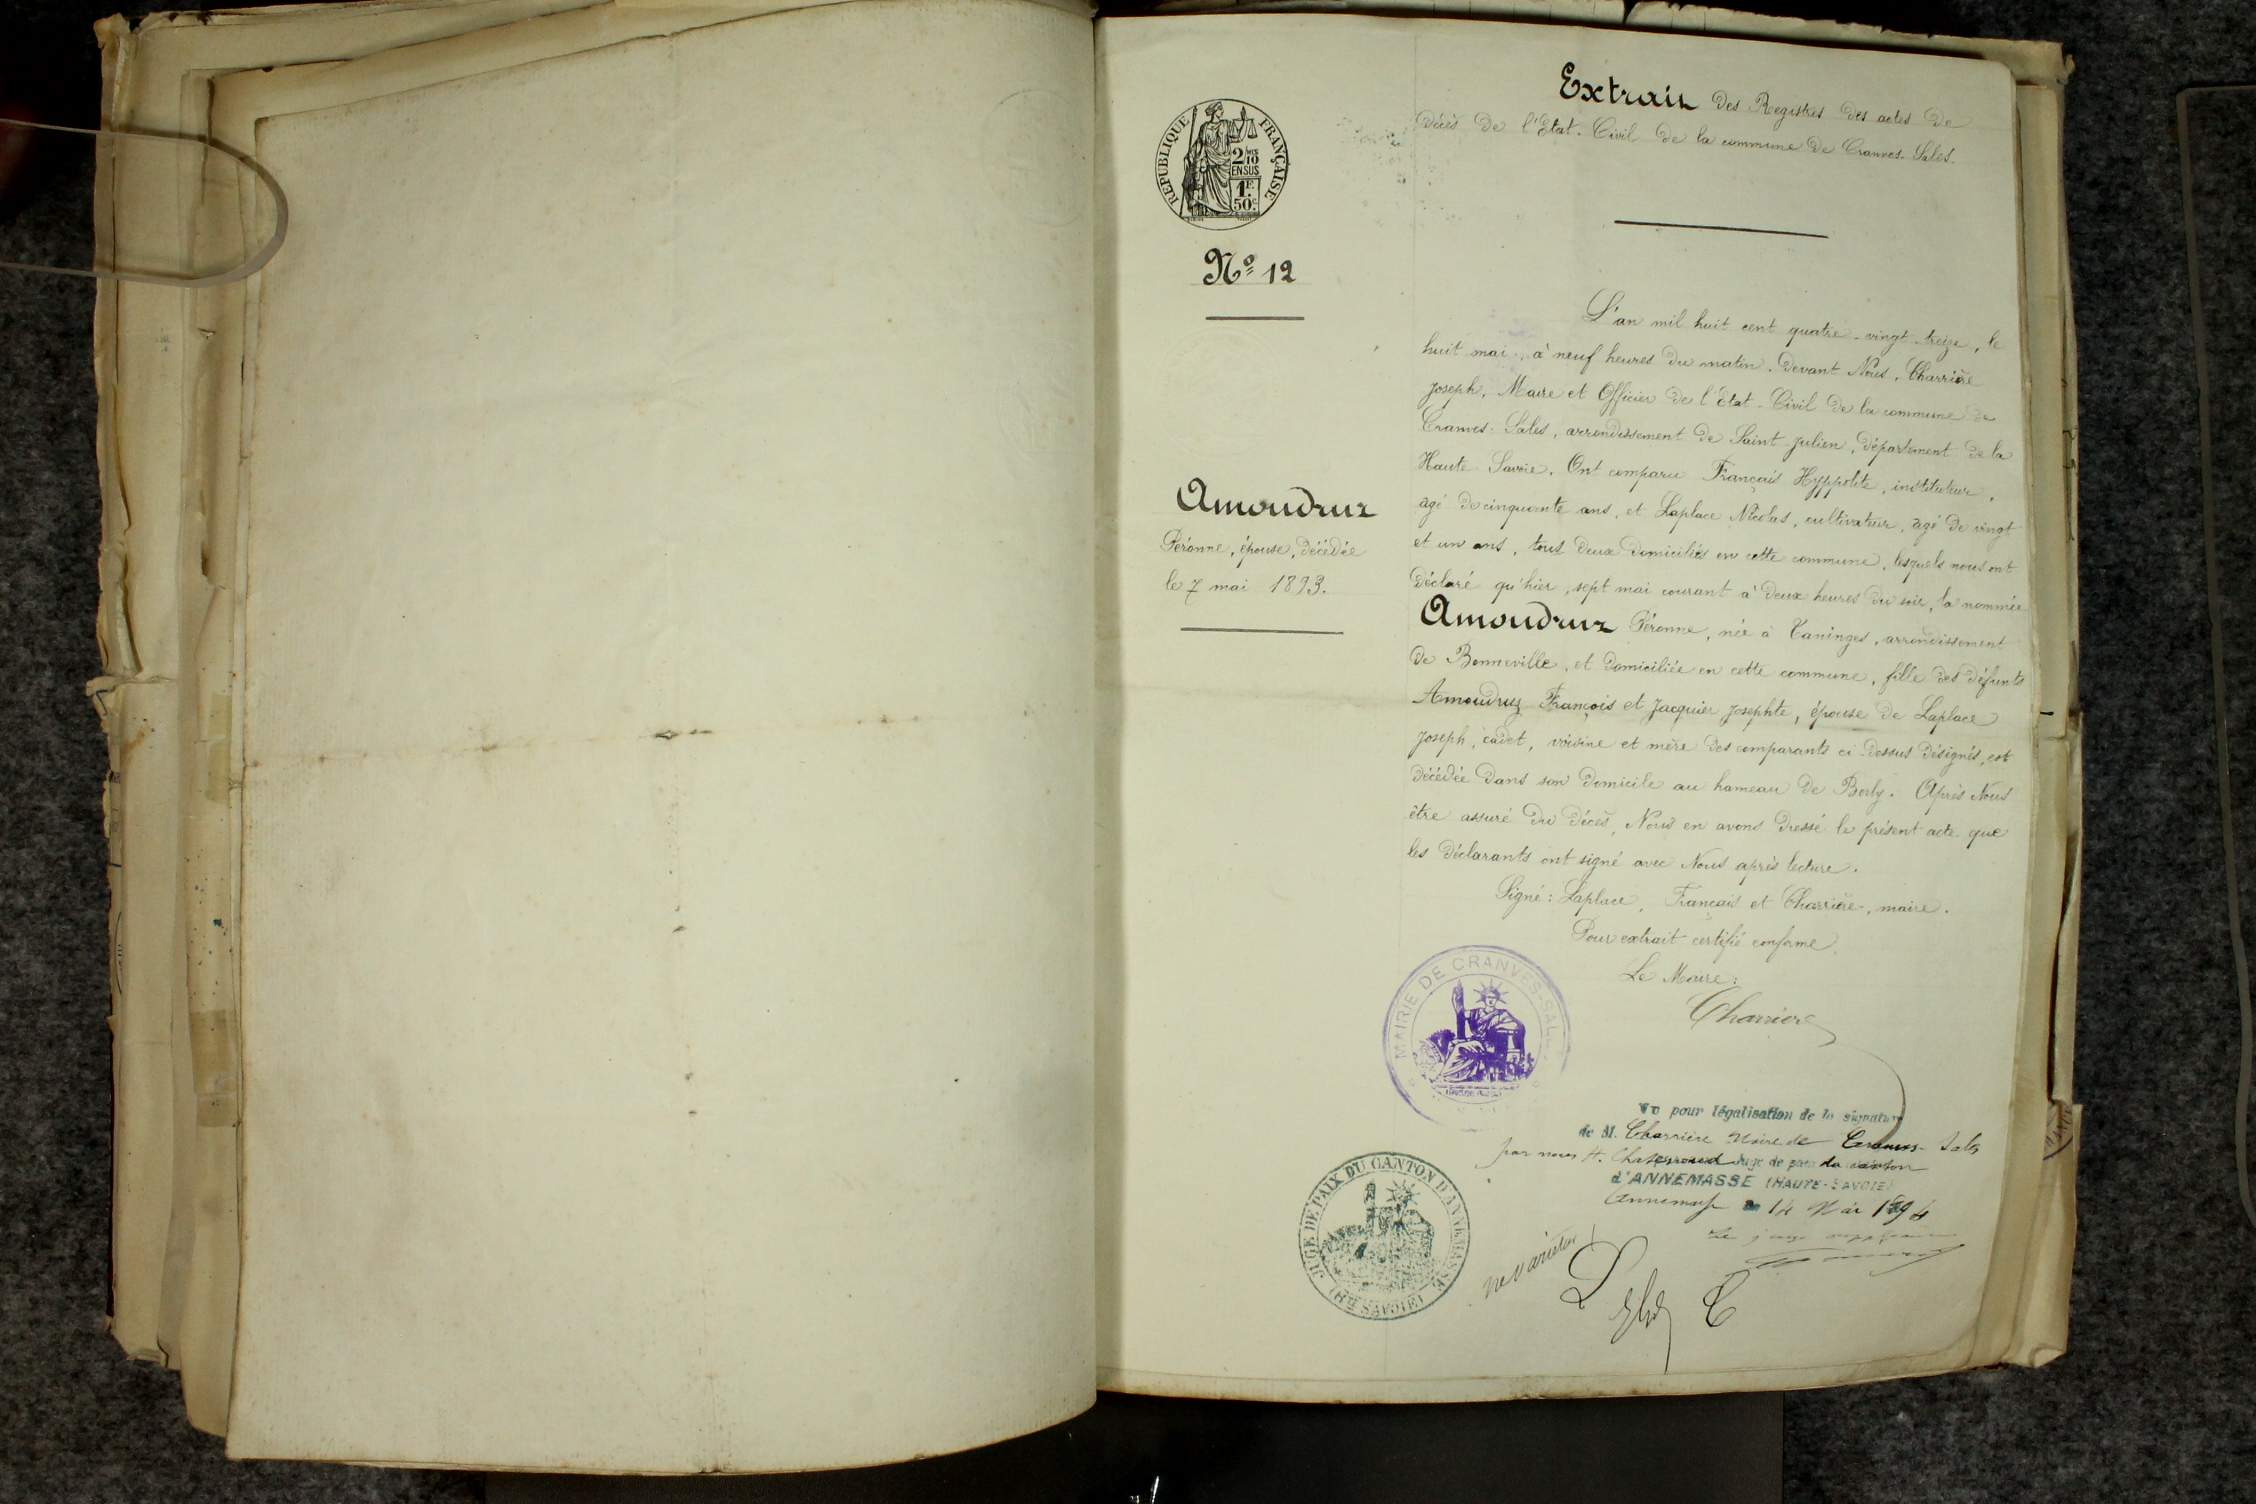 REPUBLIQUE FRANÇAISE
2/10
EN SUS
1F
50c
Nº 12
Amoudruz
Péronne, épouse, décédée
le 7 mai 1893.
Extrait des Registres des actes de
décès de l'Etat-Civil de la commune de Cranves-Sales.
L'an mil huit cent quatre-vingt-treize, le
huit mai, à neuf heures du matin. Devant Nous, Charrière
Joseph, Maire et Officier de l'état-Civil de la commune de
Cranves-Sales, arrondissement de Saint-Julien, département de la
Haute Savoie. Ont comparu Français Hyppolite, instituteur,
agé de cinquante ans, et Laplace Nicolas, cultivateur, agé de vingt
et un ans, tous deux domiciliés en cette commune, lesquels nous ont
déclaré qu'hier, sept mai courant à deux heures du soir, la nommée
Amoudruz Péronne, née à Taninges, arrondissement
de Bonneville, et domiciliée en cette commune, fille des défunts
Amoudruz François et Jacquier Josephte, épouse de Laplace
Joseph, cadet, voisine et mère des comparants ci-dessus désignés, est
décédée dans son domicile au hameau de Borly. Après Nous
être assuré du décès, Nous en avons dressé le présent acte que
les déclarants ont signé avec Nous après lecture.
Signé: Laplace, Français et Charrière, maire.
Pour extrait certifié conforme.
Le Maire:
Charriere
MAIRIE DE CRANVES-SAL
Vu pour légalisation de la signature
de M. Charrière Maire de Cranves-Sales
par nous Juge de paix du canton
d'ANNEMASSE (HAUTE-SAVOIE)
Annemasse 14 Mai 1894
Le juge suppléant
JUGE DE PAIX DU CANTON D'ANNEMASSE
(Hte SAVOIE)
ne varietur